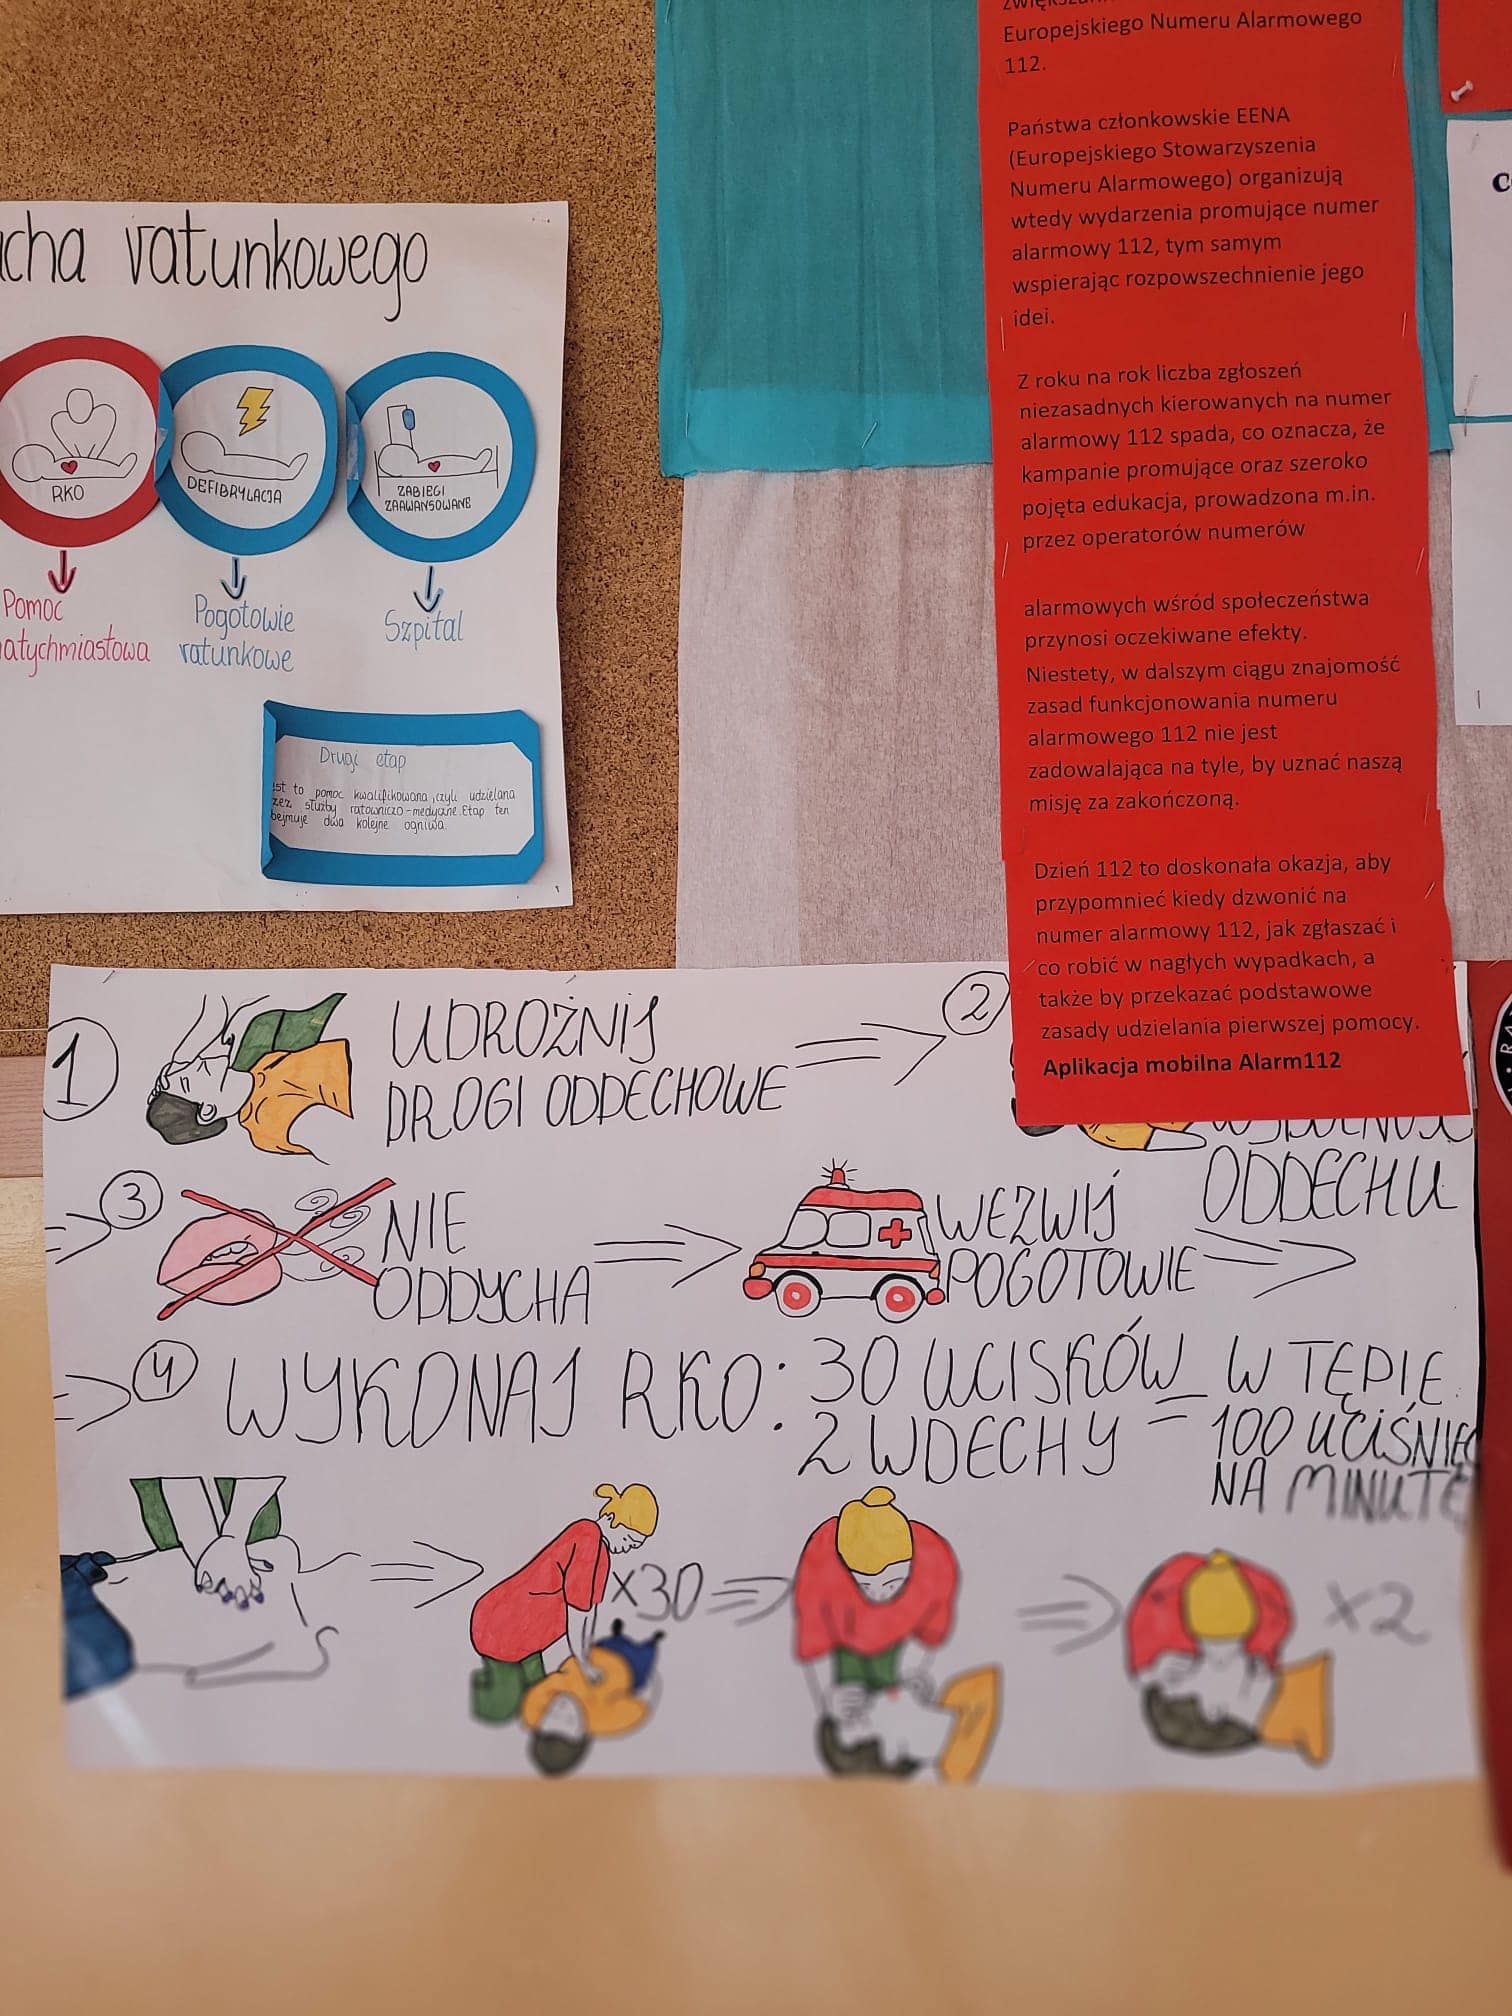 ratunkowego
RKO
DEFIBRYLACJA
ZABIEGI
ZAAWANSOWANE
Pomoc
Pogotowie
ratunkowe
Szpital
Drugi etap
to pomoc kwalifikowana, czyli udzielana
służby ratowniczo-medyczne. Etap ten
dwa kolejne ogniwa.
Europejskiego Numeru Alarmowego
112.
Państwa członkowskie EENA
(Europejskiego Stowarzyszenia
Numeru Alarmowego) organizują
wtedy wydarzenia promujące numer
alarmowy 112, tym samym
wspierając rozpowszechnienie jego
idei.
Z roku na rok liczba zgłoszeń
niezasadnych kierowanych na numer
alarmowy 112 spada, co oznacza, że
kampanie promujące oraz szeroko
pojęta edukacja, prowadzona m.in.
przez operatorów numerów
alarmowych wśród społeczeństwa
przynosi oczekiwane efekty.
Niestety, w dalszym ciągu znajomość
zasad funkcjonowania numeru
alarmowego 112 nie jest
zadowalająca na tyle, by uznać naszą
misję za zakończoną.
Dzień 112 to doskonała okazja, aby
przypomnieć kiedy dzwonić na
numer alarmowy 112, jak zgłaszać i
co robić w nagłych wypadkach, a
także by przekazać podstawowe
zasady udzielania pierwszej pomocy.
Aplikacja mobilna Alarm112
1
UDROŻNIJ
DROGI ODDECHOWE
2
ODDECHU
3
NIE
ODDYCHA
WEZWIJ
POGOTOWIE
4
WYKONAJ RKO: 30 UCISKÓW
2 WDECHY
= W TĘPIE
100 UCIŚNIĘĆ
NA MINUTĘ
x30
x2